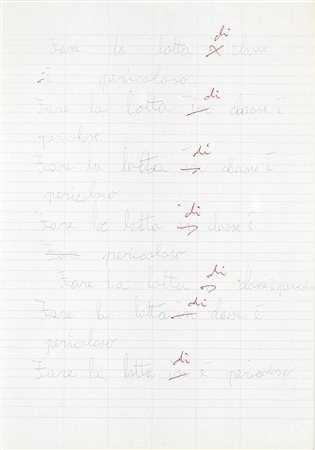 di
Fare la lotta x classi
è pericoloso
di
Fare la lotta in classe è
pericoloso
di
Fare la lotta in classe è
pericoloso
di
Fare la lotta classe è
Fare pericoloso
di
Fare la lotta classe è pericoloso
di
Fare la lotta in classe è
pericoloso
di
Fare la lotta in è pericoloso